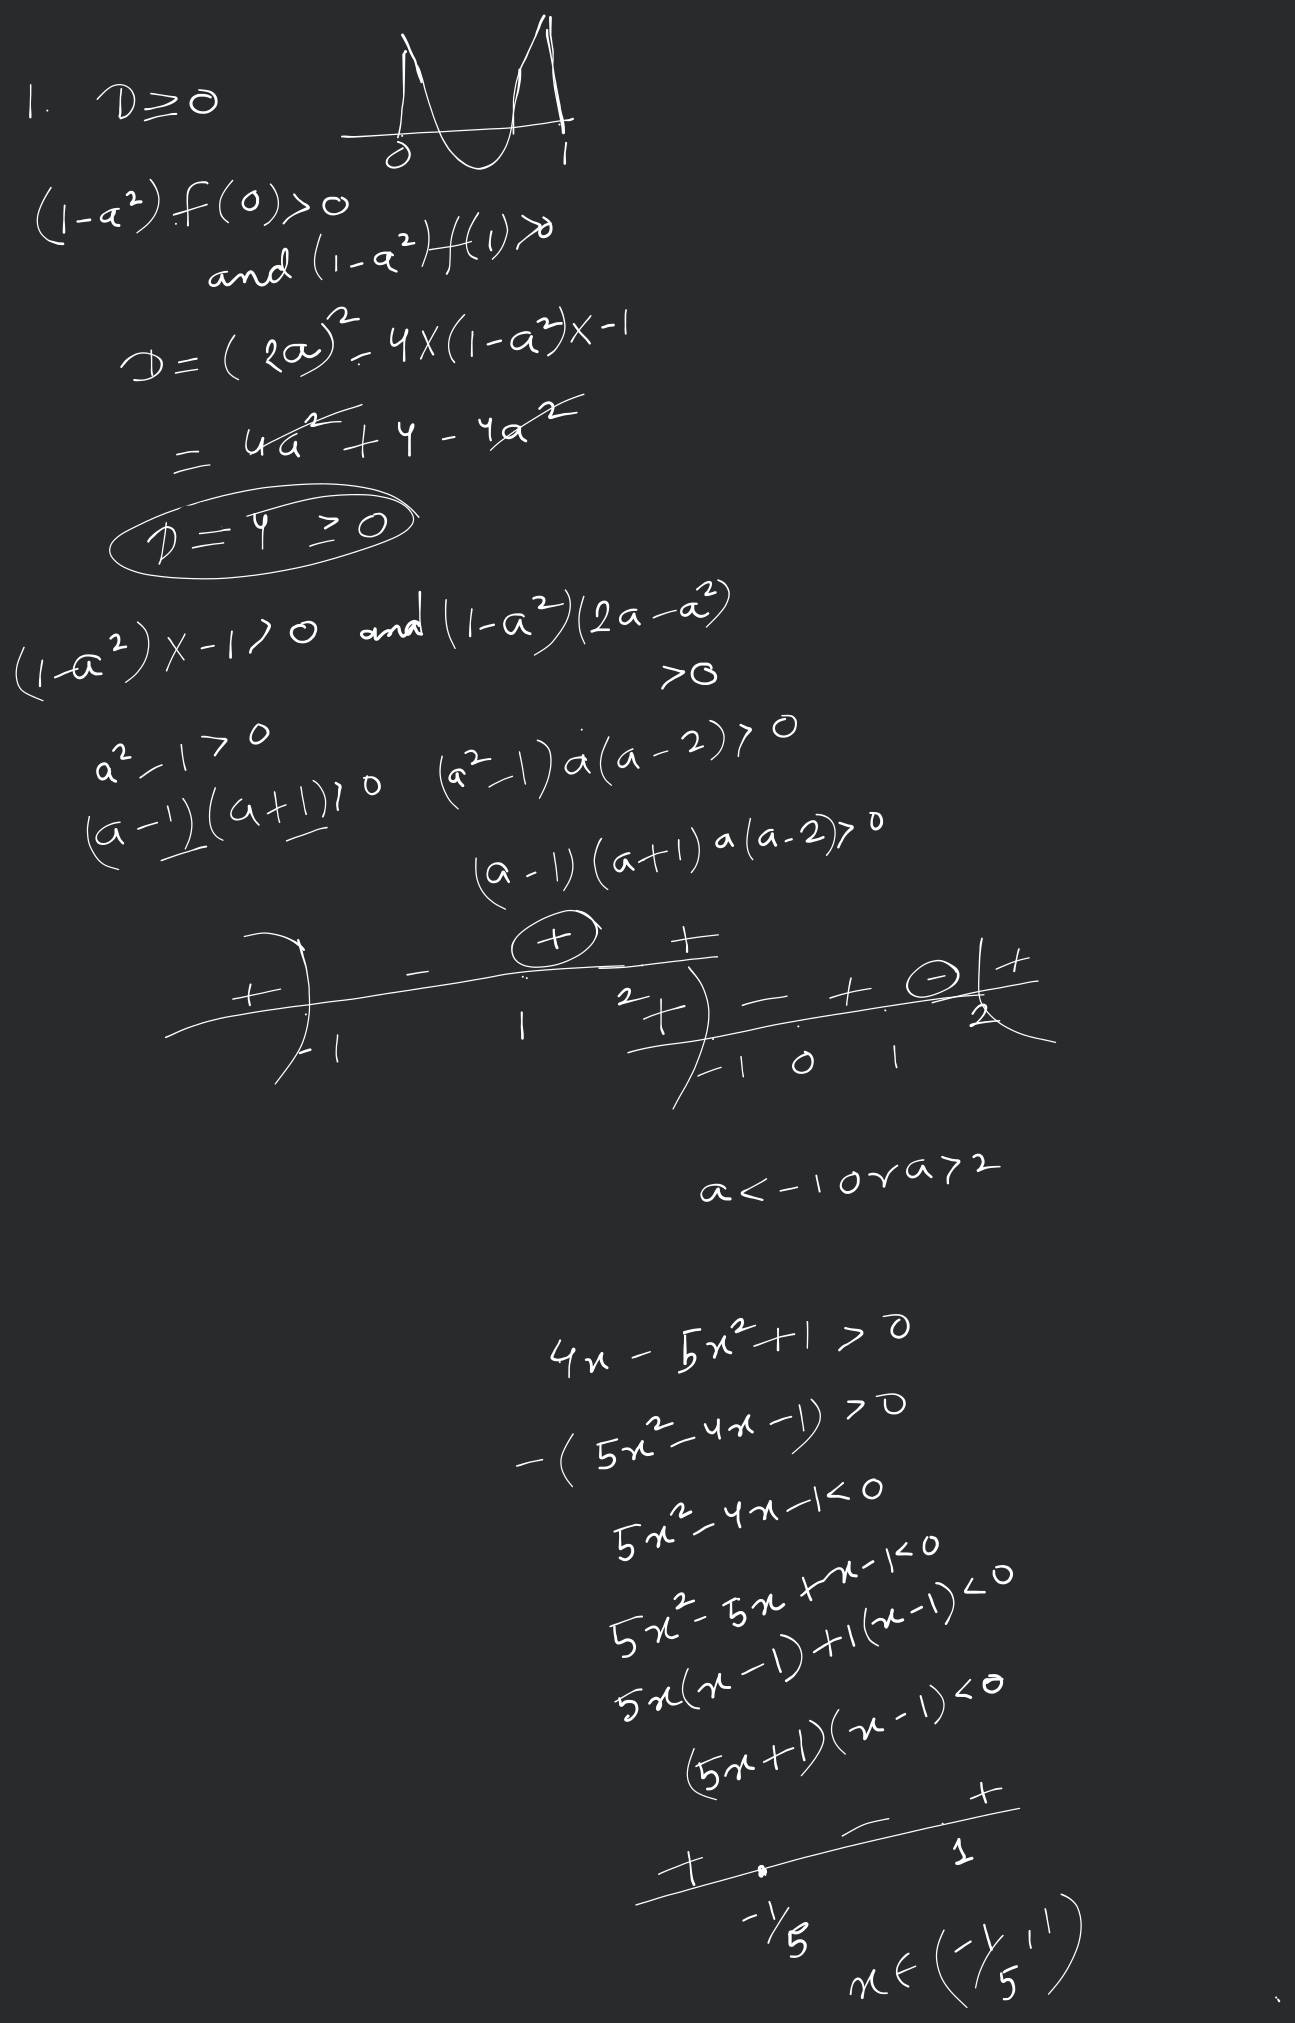 1. D≥0
0 1
(1-a²) f(0)>0
and (1-a²)f(1)>0
D = (2a)² - 4×(1-a²)×-1
= 4a² + 4 - 4a²
D = 4 ≥ 0
(1-a²)×-1>0 and (1-a²)(2a-a²)
>0
a²-1>0 (a²-1)a(a-2)>0
(a-1)(a+1)>0
(a-1)(a+1)a(a-2)>0
+ - + +
-1 1 2
+ - + - +
-1 0 1 2
a<-1 or a>2
4x - 5x²+1 > 0
-(5x²-4x-1) >0
5x²-4x-1<0
5x²-5x+x-1<0
5x(x-1)+1(x-1)<0
(5x+1)(x-1)<0
+ - +
-1/5 1
x∈(-1/5,1)